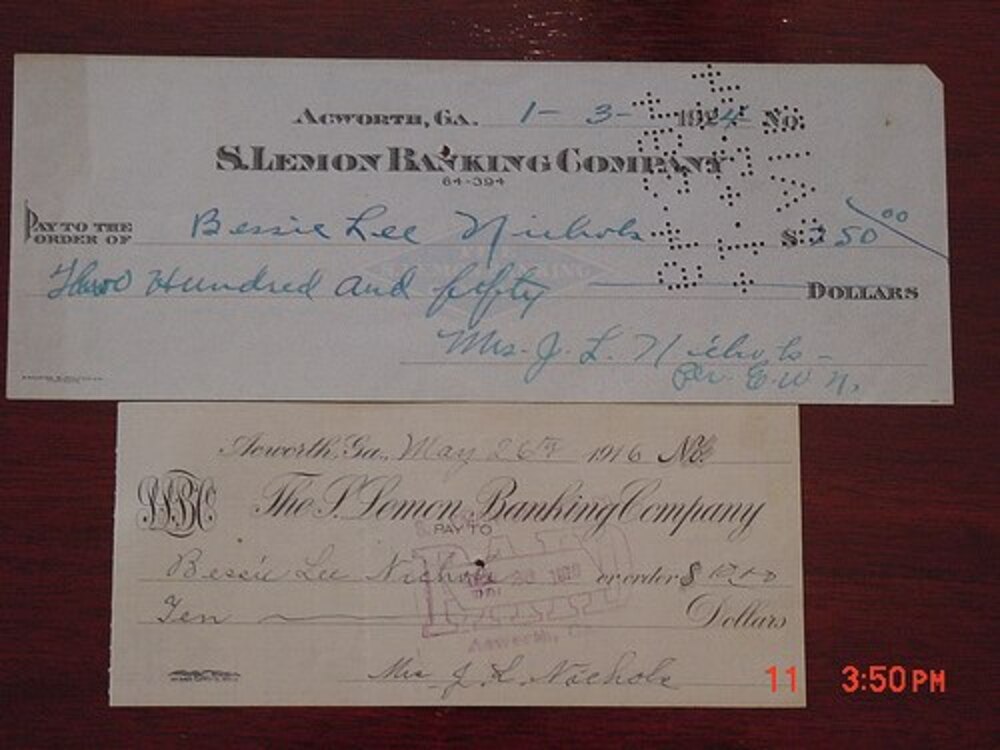 ACWORTH, GA. 1-3-1924 No.
S. LEMON BANKING COMPANY
64-394
PAY TO THE ORDER OF Bessie Lee Nichols $250 00
Two Hundred and fifty DOLLARS
Mrs. J. L. Nichols -
Per E. W. N.
Acworth, Ga., May 26th 1916 No.
The S. Lemon Banking Company
PAY TO
Bessie Lee Nichols or order $ 10.00
Ten Dollars
PAID
Acworth, Ga.
Mrs J. L. Nichols
11 3:50PM